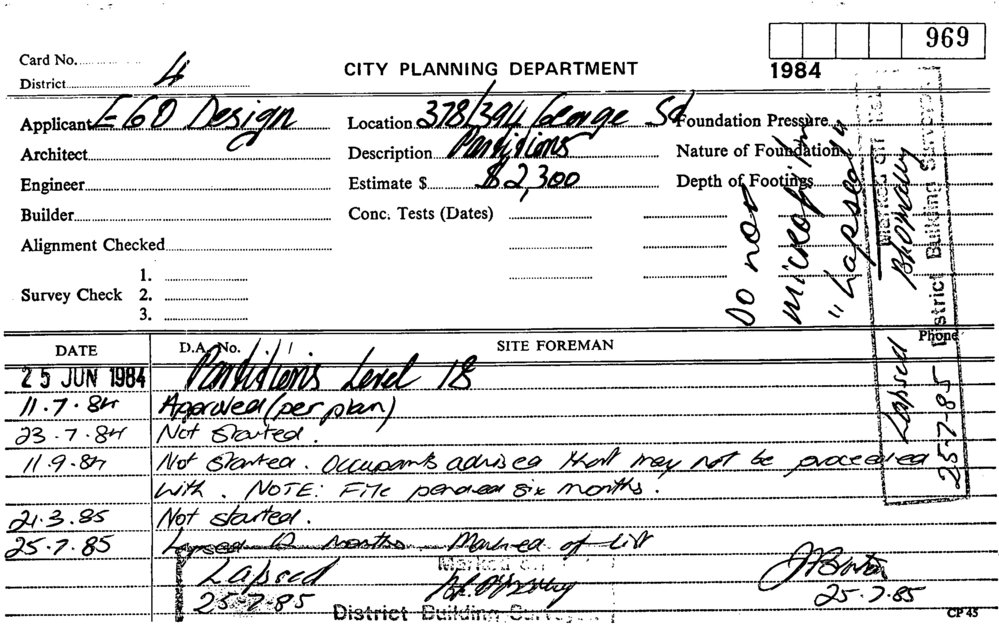 969
Card No.
District 4
CITY PLANNING DEPARTMENT
1984
Applicant EGO Design
Location 378/394 George St
Foundation Pressure
Architect
Description Partitions
Nature of Foundation
Engineer
Estimate $ $2,300
Depth of Footings
Builder
Conc. Tests (Dates)
Alignment Checked
1.
Survey Check 2.
3.
Do not
microfilm
"Lapsed"
Marked off list
District Building Surveyor
Lapsed
25-7-85
DATE
D.A. No.
SITE FOREMAN
Phone
25 JUN 1984 Partitions Level 18
11.7.84 Approved (per plan)
23.7.84 Not Started.
11.9.84 Not Started. Occupants advised that may not be proceeded
with. NOTE: File pended six months.
21.3.85 Not started.
25.7.85 Lapsed 12 months Marked of List
Marked off
Lapsed
25-7-85
District Building Surveyor
25.7.85
CP 45